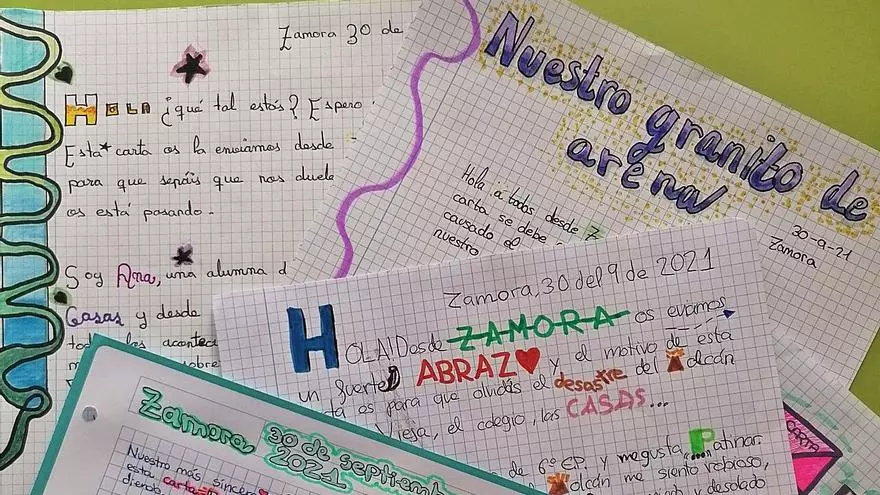 Zamora 30 de
HOLA ¿qué tal estás? Espero
Esta carta os la enviamos desde
para que sepáis que nos duele
os está pasando.
Soy Ana, una alumna d
Casas y desde
Nuestro granito de
arena
30-9-21
Zamora
Hola a todos desde Z
carta se debe
causado el
nuestro
Zamora, 30 del 9 de 2021
HOLA! Desde ZAMORA os evamos
un fuerte ABRAZO y el motivo de esta
ta es para que olvidéis el desastre del volcán
Vieja, el colegio, las CASAS...
de 6º EP. y me gusta Patinar
olcán me siento rabioso,
y desolado
Zamora 30 de septiemb
2021
Nuestro más sincero
esta carta
CARTA